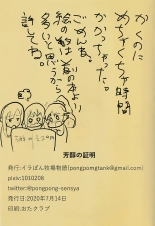 かくのに
めちゃくちゃ時間
かかっちゃった。
ごめんな。
絵の粗は
多いと思うから
許してね。
芳醇の証明
発行:イラぽん牧場物語(pongpomgtank@gmail.com)
pixiv:1010208
twitter:@pongpong-sensya
発行日:2020年7月14日
印刷:おたクラブ